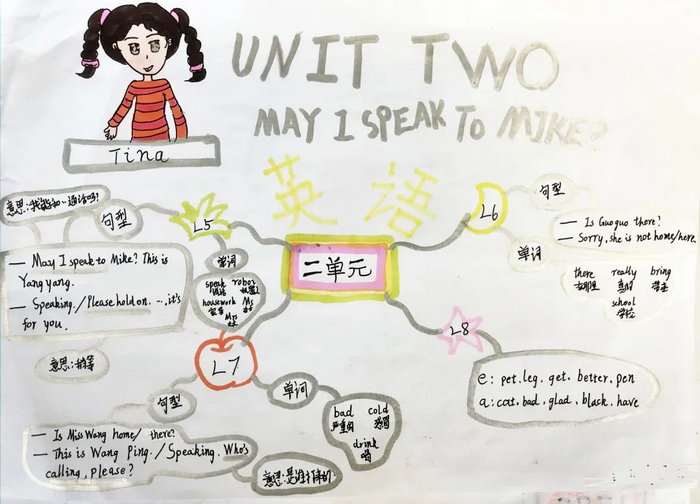 UNIT TWO
MAY I SPEAK TO MIKE?
Tina
英语
二单元
L5
句型
— May I speak to Mike? This is
Yang yang.
— Speaking./Please hold on. ...,it's
for you.
单词
speak robot
说话 机器人
housework Ms
家务
Mrs
L6
句型
— Is Guoguo there?
— Sorry, she is not home/here.
单词
there really bring
在那里 真的 带来
school
学校
L7
句型
— Is Miss Wang home/ there?
— This is Wang Ping./Speaking. Who's
calling, please?
单词
bad cold
严重的 感冒
drink
喝
L8
e: pet. leg. get. better. pen
a: cat. bad. glad. black. have